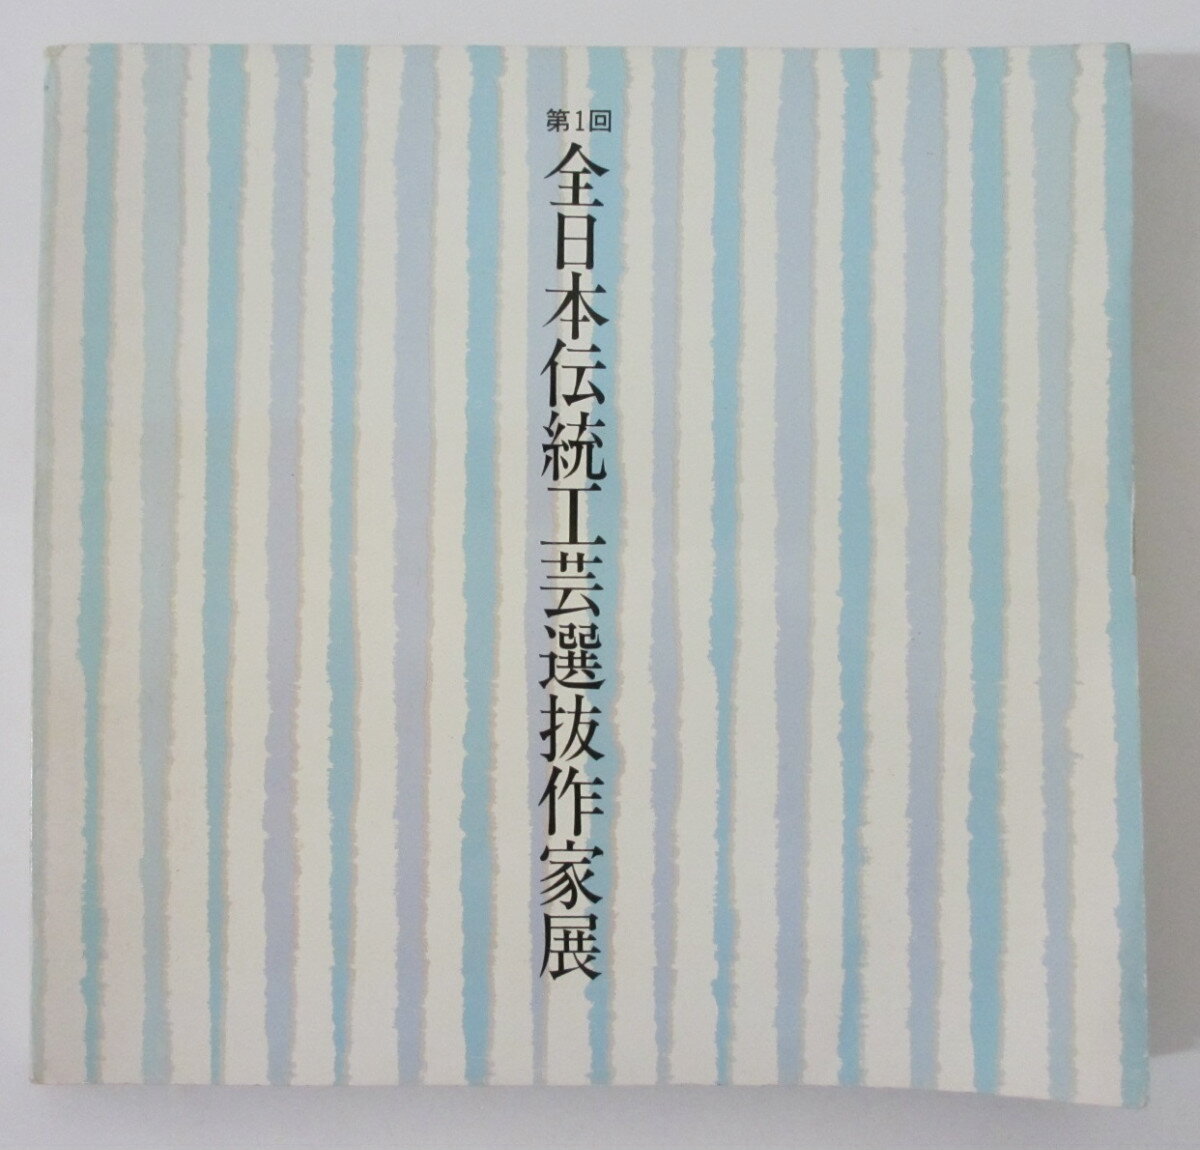 第1回
全日本伝統工芸選抜作家展